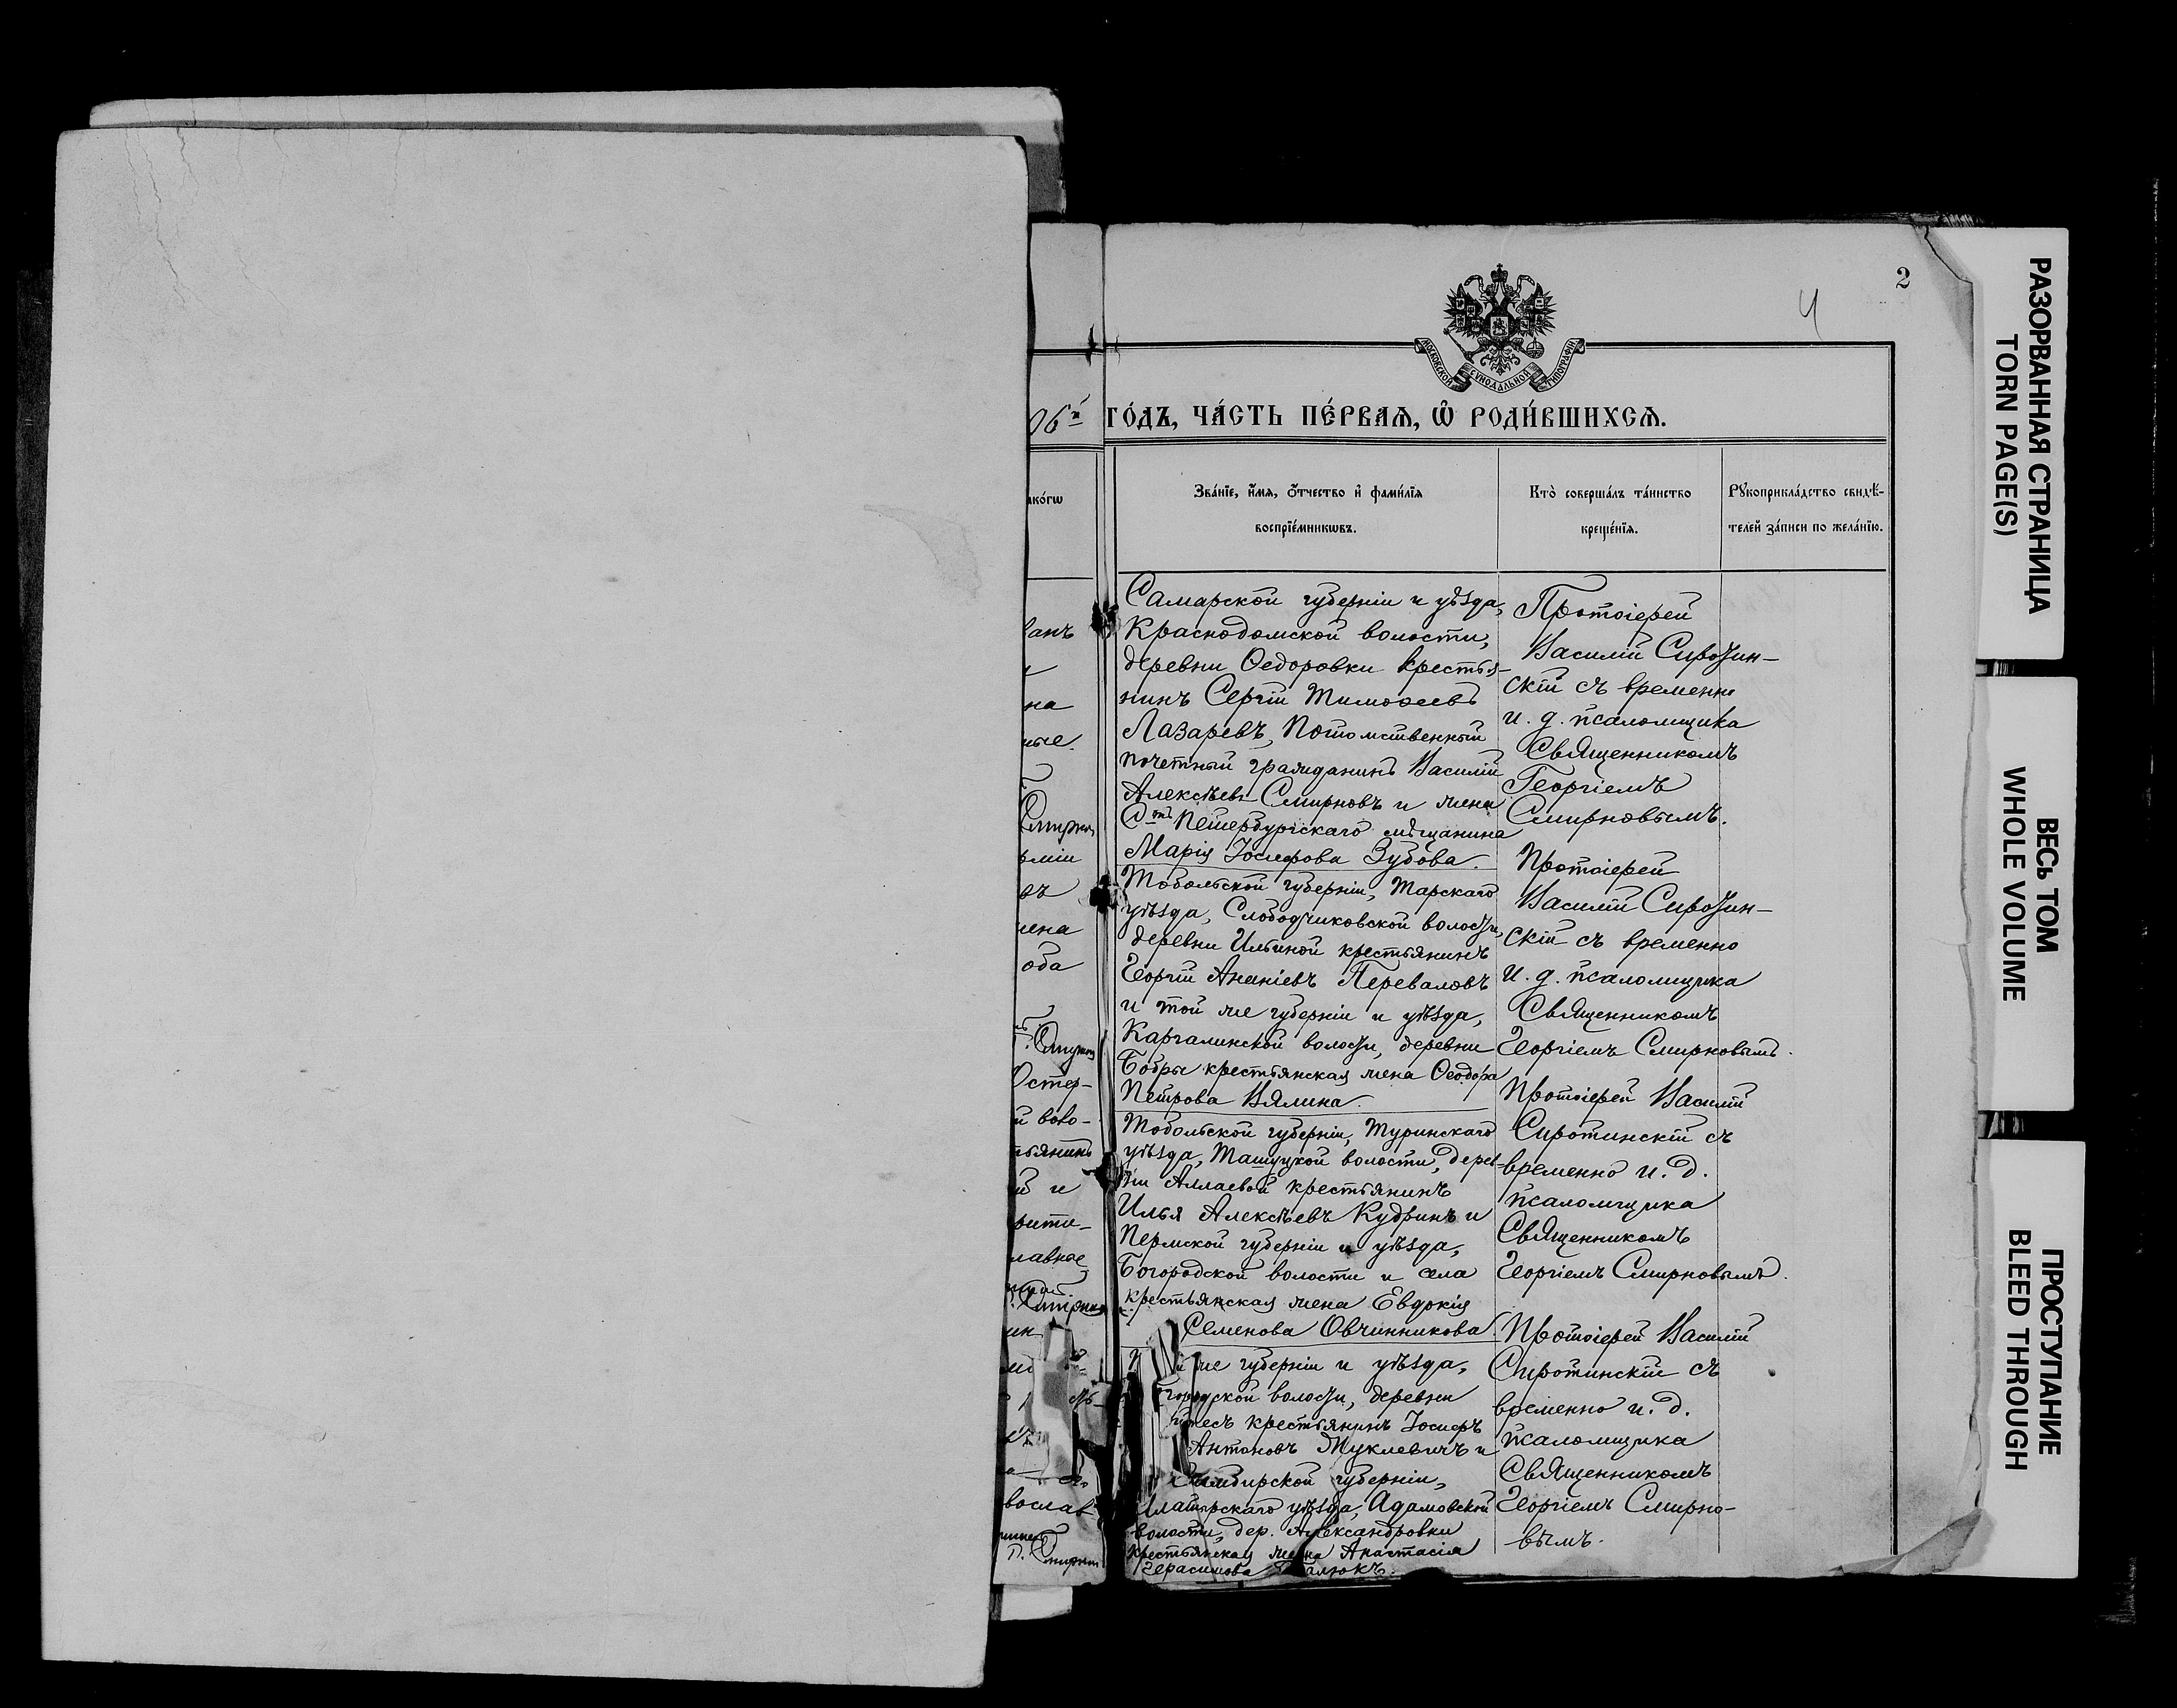 2
4
МОСКОВСКОЙ СѴНОДАЛЬНОЙ ТИПОГРАФІИ
06й го́дъ, ча́сть пе́рваѧ, ѡ҆ роди́вшихсѧ.
Зва́нїе, и҆́мя, ѻ҆́тчество и҆ фами́лїя
воспрїе́мникѡвъ.
Кто̀ соверша́лъ та́инство
креще́нїя.
Рꙋкоприкла́дство свидѣ́-
телей за́писи по жела́нїю.
Самарской губерніи и уѣзда,
Краснодомской волости,
деревни Ѳедоровки крестья-
нинъ Сергій Тимоѳеевъ
Лазаревъ, Потомственный
почетный гражданинъ Василій
Алексѣевъ Смирновъ и жена
Петербургскаго мѣщанина
Марія Іосифова Зубова.
Протоіерей
Василій Сиротин-
скій съ временно
и. д. псаломщика
Священникомъ
Георгіемъ
Смирновымъ.
Тобольской губерніи, Тарскаго
уѣзда, Слободчиковской волости,
деревни Ильиной крестьянинъ
Георгій Ананіевъ Переваловъ
и той же губерніи и уѣзда,
Каргалинской волости, деревни
Бобры крестьянская жена Ѳеодора
Петрова Вялина.
Протоіерей
Василій Сиротин-
скій съ временно
и. д. псаломщика
Священникомъ
Георгіемъ Смирновымъ.
Тобольской губерніи, Туринскаго
уѣзда, волости, дерев-
ни крестьянинъ
Илья Алексѣевъ Кудринъ и
Пермской губерніи и уѣзда,
Богородской волости и села
крестьянская жена Евдокія
Семенова Овчинникова.
Протоіерей Василій
Сиротинскій съ
временно и. д.
псаломщика
Священникомъ
Георгіемъ Смирновымъ.
же губерніи и уѣзда,
волости, деревни
крестьянинъ Іосифъ
Антоновъ Жуклевичъ и
Симбирской губерніи,
уѣзда, Адамовской
волости, дер. Александровки
крестьянская жена Анастасія
Герасимова
Протоіерей Василій
Сиротинскій съ
временно и. д.
псаломщика
Священникомъ
Георгіемъ Смирно-
вымъ.
РАЗОРВАННАЯ СТРАНИЦА
TORN PAGE(S)
ВЕСЬ ТОМ
WHOLE VOLUME
ПРОСТУПАНИЕ
BLEED THROUGH